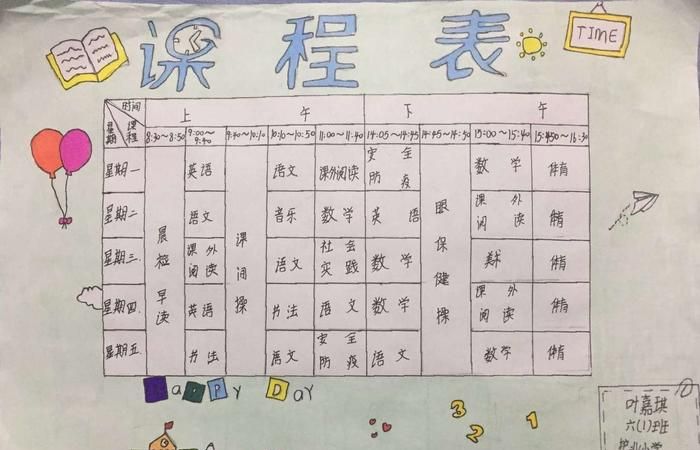 课程表
TIME
时间 上午 下午
星期 课程 8:30~8:50 9:00~9:40 9:40~10:10 10:10~10:50 11:00~11:40 14:05~14:45 14:45~14:50 15:00~15:40 15:50~16:30
星期一 英语 语文 课外阅读 安全防疫 数学 体育
星期二 语文 音乐 数学 英语 课外阅读 体育
星期三 课外阅读 语文 社会实践 数学 美术 体育
星期四 英语 书法 语文 数学 课外阅读 体育
星期五 书法 语文 安全防疫 语文 数学 体育
晨检早读
课间操
眼保健操
HaPPY DaY
3
2
1
叶嘉琪
六(1)班